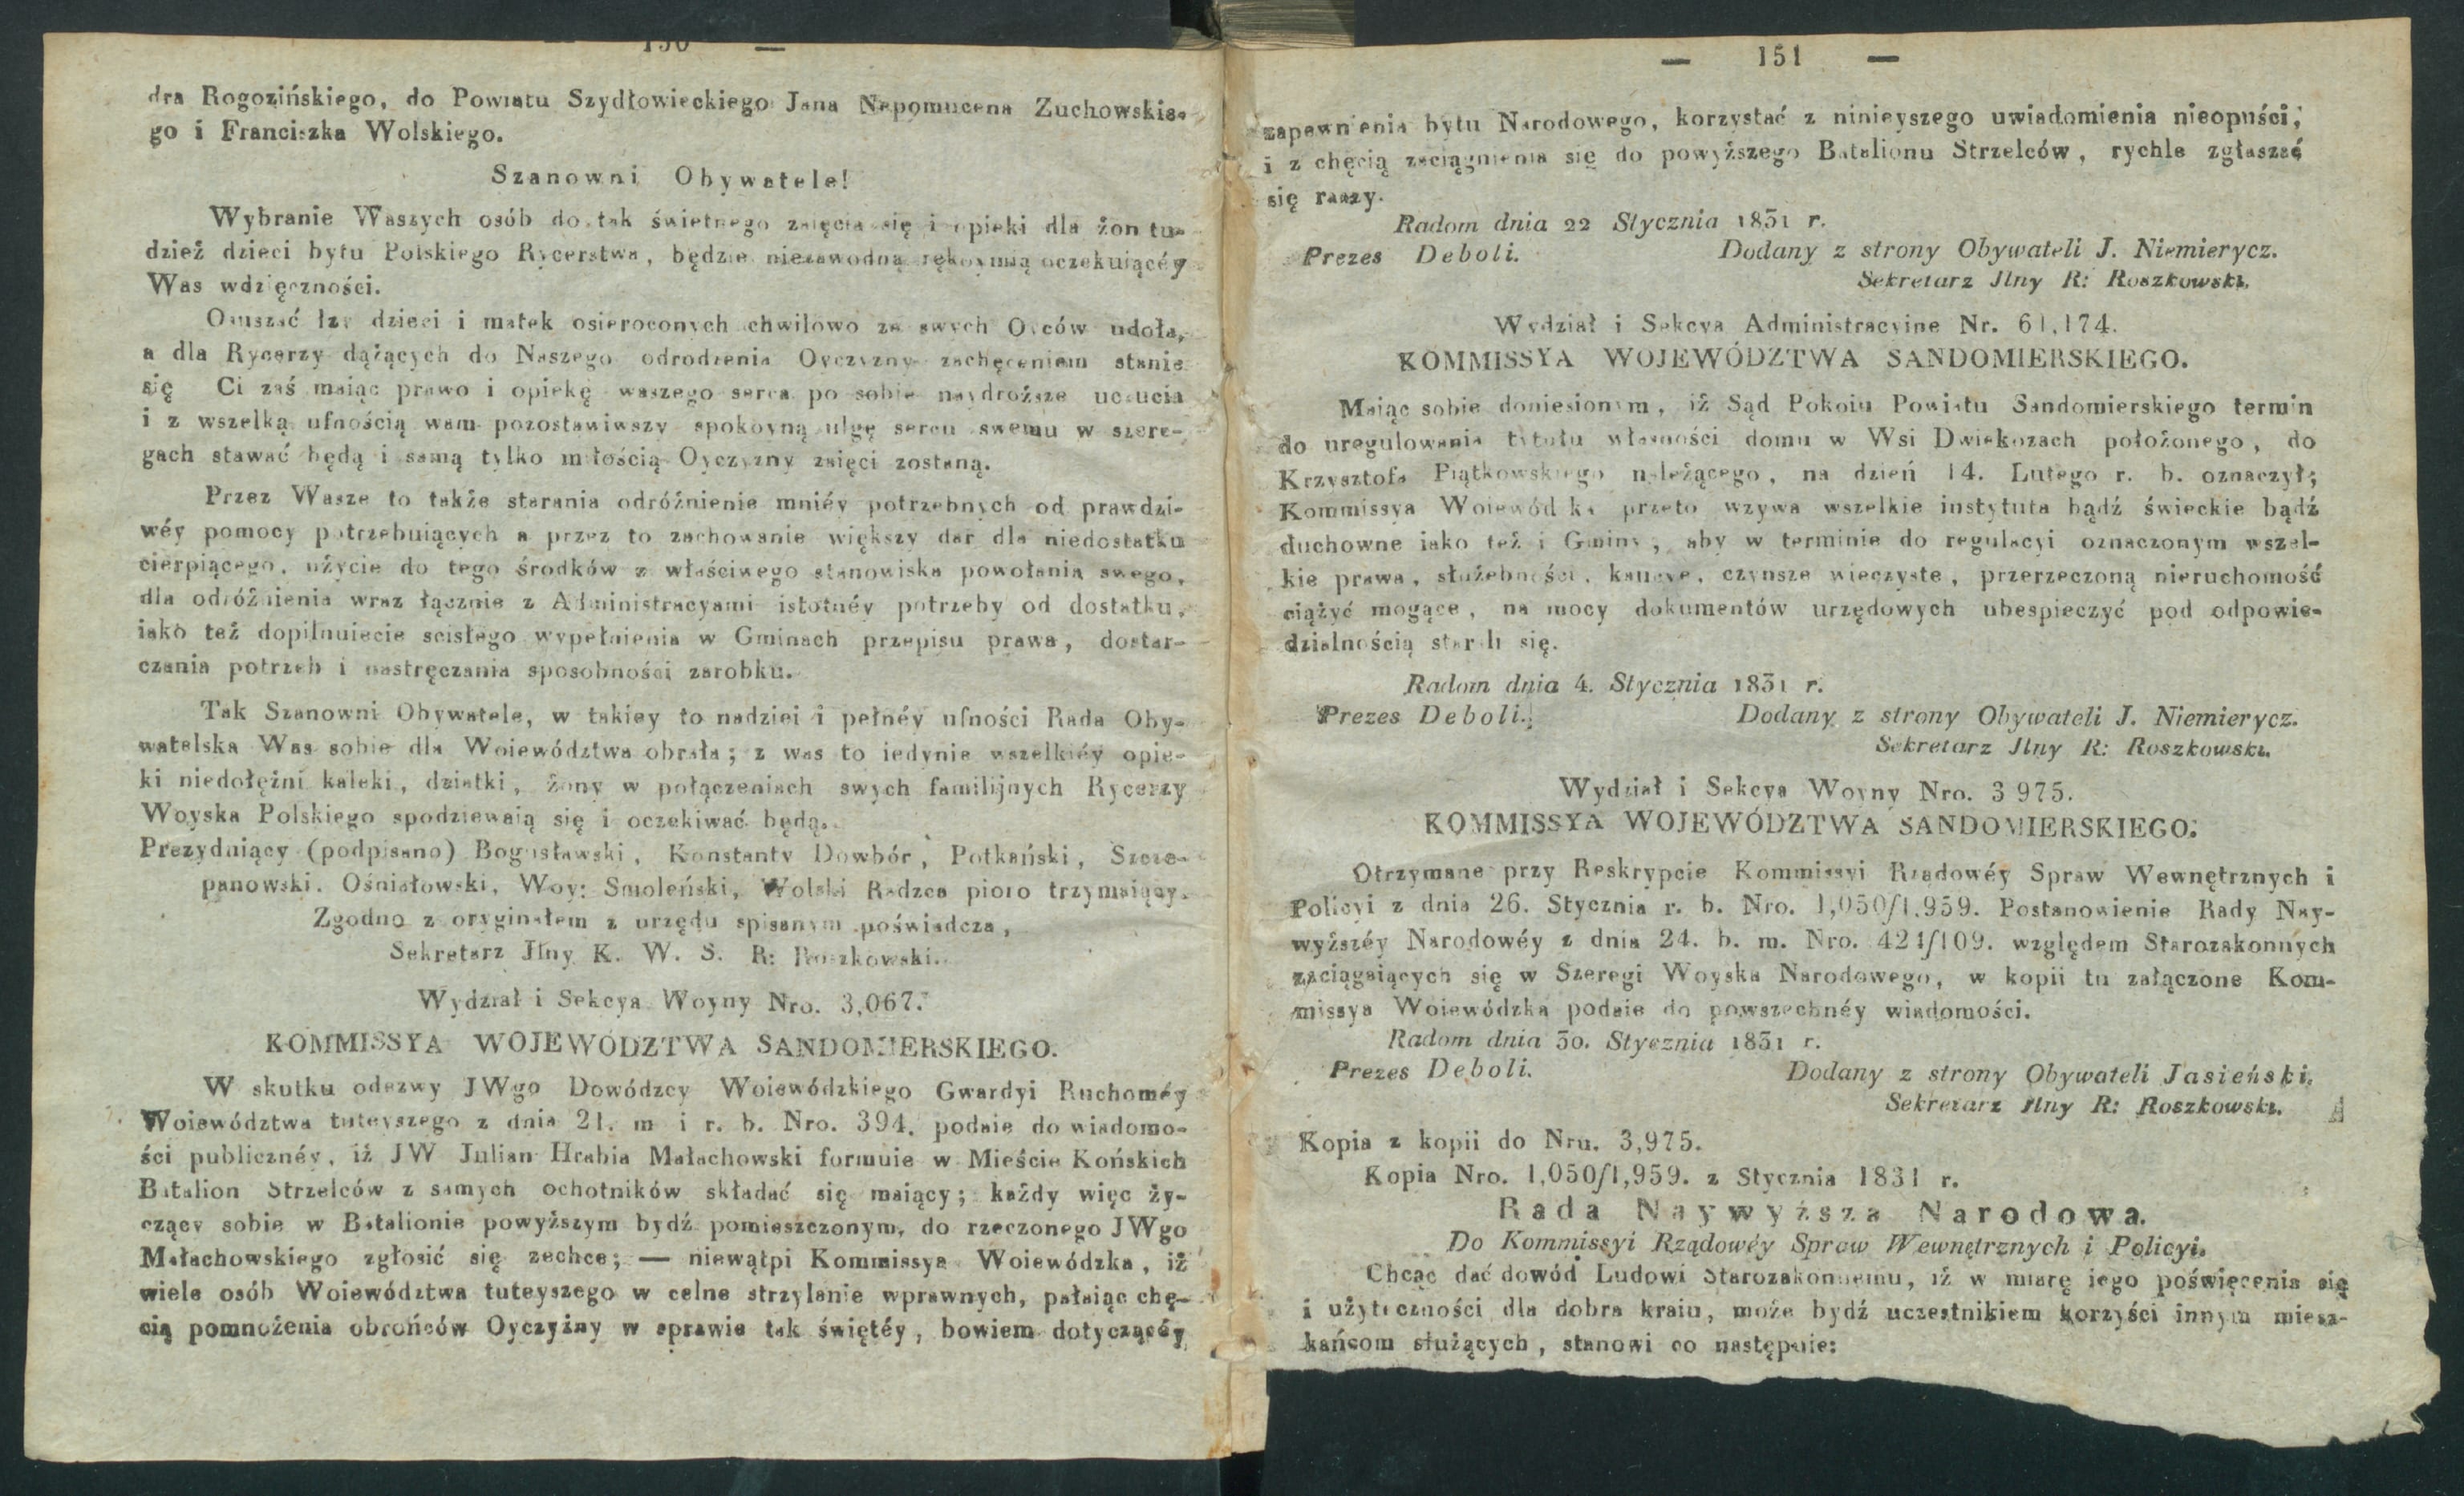 — 150 —
dra Rogozińskiego, do Powiatu Szydłowieckiego Jana Nepomucena Zuchowskie-
go i Franciszka Wolskiego.
Szanowni Obywatele!
Wybranie Waszych osób do tak świetnego zaięcia się i opieki dla żon tu-
dzież dzieci bytu Polskiego Rycerstwa, będzie niezawodną rękoymią oczekuiącéy
Was wdzięczności.
Osuszać łzy dzieci i matek osieroconych chwilowo ze swych Oyców udoła,
a dla Rycerzy dążących do Naszego odrodzenia Oyczyzny zachęceniem stanie
się Ci zaś maiąc prawo i opiekę waszego serca po sobie naydroższe uczucia
i z wszelką ufnością wam pozostawiwszy spokoyną ulgę sercu swemu w szere-
gach stawać będą i samą tylko miłością Oyczyzny zaięci zostaną.
Przez Wasze to także starania odróźnienie mniéy potrzebnych od prawdzi-
wéy pomocy potrzebuiących a przez to zachowanie większy dar dla niedostatku
cierpiącego, użycie do tego środków z właściwego stanowiska powołania swego,
dla odróźnienia wraz łącznie z Administracyami istotnéy potrzeby od dostatku,
iako też dopilnuiecie scisłego wypełnienia w Gminach przepisu prawa, dostar-
czania potrzeb i nastręczania sposobności zarobku.
Tak Szanowni Obywatele, w takiey to nadziei i pełnéy ufności Rada Oby-
watelska Was sobie dla Woiewództwa obrała; z was to iedynie wszelkiéy opie-
ki niedołężni kaleki, dziatki, żony w połączeniach swych familijnych Rycerzy
Woyska Polskiego spodziewaią się i oczekiwać będą.
Prezyduiący (podpisano) Bogusławski, Konstanty Dowbór, Potkański, Szcze-
panowski, Ośniałowski, Woy: Smoleński, Wolski Radzca pioro trzymaiący.
Zgodno z oryginałem z urzędu spisanym poświadcza,
Sekretarz Jlny K. W. S. R: Roszkowski.
Wydział i Sekcya Woyny Nro. 3,067.
KOMMISSYA WOJEWÓDZTWA SANDOMIERSKIEGO.
W skutku odezwy JWgo Dowódzcy Woiewódzkiego Gwardyi Ruchoméy
Woiewództwa tuteyszego z dnia 21. m i r. b. Nro. 394. podaie do wiadomo-
ści publicznéy, iż JW Julian Hrabia Małachowski formuie w Mieście Końskich
Batalion Strzelców z samych ochotników składać się maiący; każdy więc ży-
czący sobie w Batalionie powyższym bydź pomieszczonym, do rzeczonego JWgo
Małachowskiego zgłosić się zechce; — niewątpi Kommissya Woiewódzka, iż
wiele osób Woiewództwa tuteyszego w celne strzylanie wprawnych, pałaiąc chę-
cią pomnożenia obrońców Oyczyzny w sprawie tak świętéy, bowiem dotyczącéy
— 151 —
zapewnienia bytu Narodowego, korzystać z ninieyszego uwiadomienia nieopuści,
i z chęcią zaciągnienia się do powyższego Batalionu Strzelców, rychle zgłaszać
się raczy.
Radom dnia 22 Stycznia 1831 r.
Prezes Deboli. Dodany z strony Obywateli J. Niemierycz.
Sekretarz Jlny R: Roszkowski.
Wydział i Sekcya Administracyine Nr. 61,174.
KOMMISSYA WOJEWÓDZTWA SANDOMIERSKIEGO.
Maiąc sobie doniesionym, iż Sąd Pokoiu Powiatu Sandomierskiego termin
do uregulowania tytułu własności domu w Wsi Dwiekozach położonego, do
Krzysztofa Piątkowskiego należącego, na dzień 14. Lutego r. b. oznaczył;
Kommissya Woiewódzka przeto wzywa wszelkie instytuta bądź świeckie bądź
duchowne iako też i Gminy, aby w terminie do regulacyi oznaczonym wszel-
kie prawa, służebności, kaucye, czynsze wieczyste, przerzeczoną nieruchomość
ciążyć mogące, na mocy dokumentów urzędowych ubespieczyć pod odpowie-
dzialnością starali się.
Radom dnia 4. Stycznia 1831 r.
Prezes Deboli. Dodany z strony Obywateli J. Niemierycz.
Sekretarz Jlny R: Roszkowski.
Wydział i Sekcya Woyny Nro. 3 975.
KOMMISSYA WOJEWÓDZTWA SANDOMIERSKIEGO.
Otrzymane przy Reskrypcie Kommissyi Rządowéy Spraw Wewnętrznych i
Policyi z dnia 26. Stycznia r. b. Nro. 1,050/1,959. Postanowienie Rady Nay-
wyższéy Narodowéy z dnia 24. b. m. Nro. 421/109. względem Starozakonnych
zaciągaiących się w Szeregi Woyska Narodowego, w kopii tu załączone Kom-
missya Woiewódzka podaie do powszechnéy wiadomości.
Radom dnia 30. Stycznia 1831 r.
Prezes Deboli. Dodany z strony Obywateli Jasieński.
Sekretarz Jlny R: Roszkowski.
Kopia z kopii do Nru. 3,975.
Kopia Nro. 1,050/1,959. z Stycznia 1831 r.
Rada Naywyższa Narodowa.
Do Kommissyi Rządowéy Spraw Wewnętrznych i Policyi.
Chcąc dać dowód Ludowi Starozakonnemu, iż w miarę iego poświęcenia się
i użyteczności dla dobra kraiu, może bydź uczestnikiem korzyści innym miesz-
kańcom służących, stanowi co następuie: